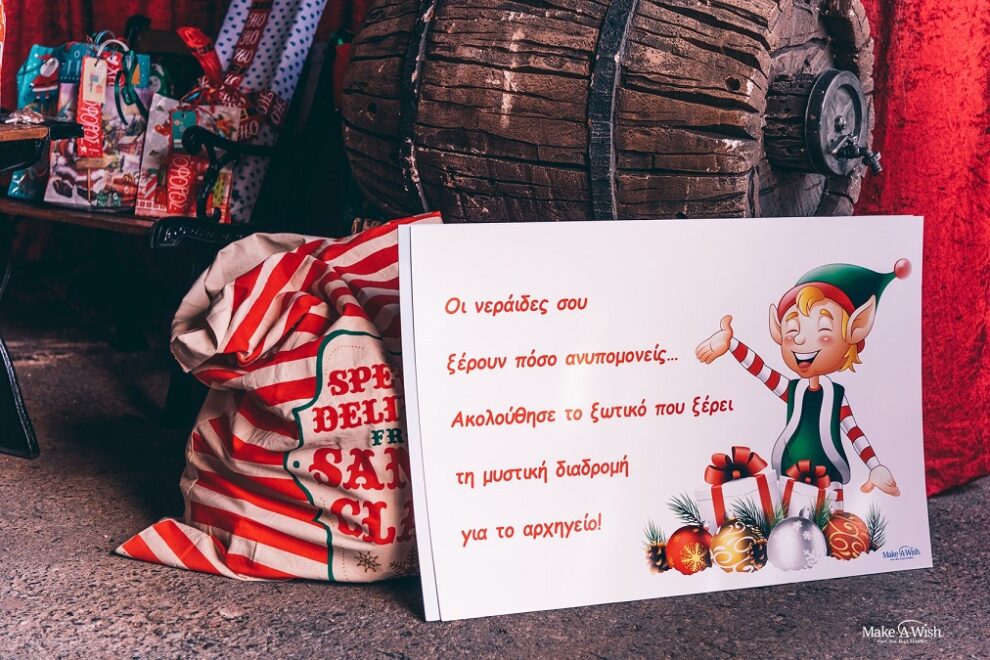 Οι νεράιδες σου
ξέρουν πόσο ανυπομονείς...
Ακολούθησε το ξωτικό που ξέρει
τη μυστική διαδρομή
για το αρχηγείο!
Make-A-Wish
SPE
DELI
FR
SAN
CLA
HO HO HO
Make-A-Wish